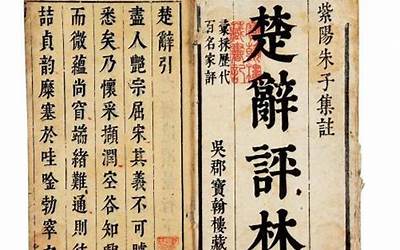 紫陽朱子集註
楚辭評林
彙採歷代
百名家評
吳郡寶翰樓藏
楚辭引
盡人艷宗屈宋其義不可
悉矣乃懷釆擷潤空谷知
而微蘊尚窅端緒難通則
喆貞韵糜塞於哇唫勃窣